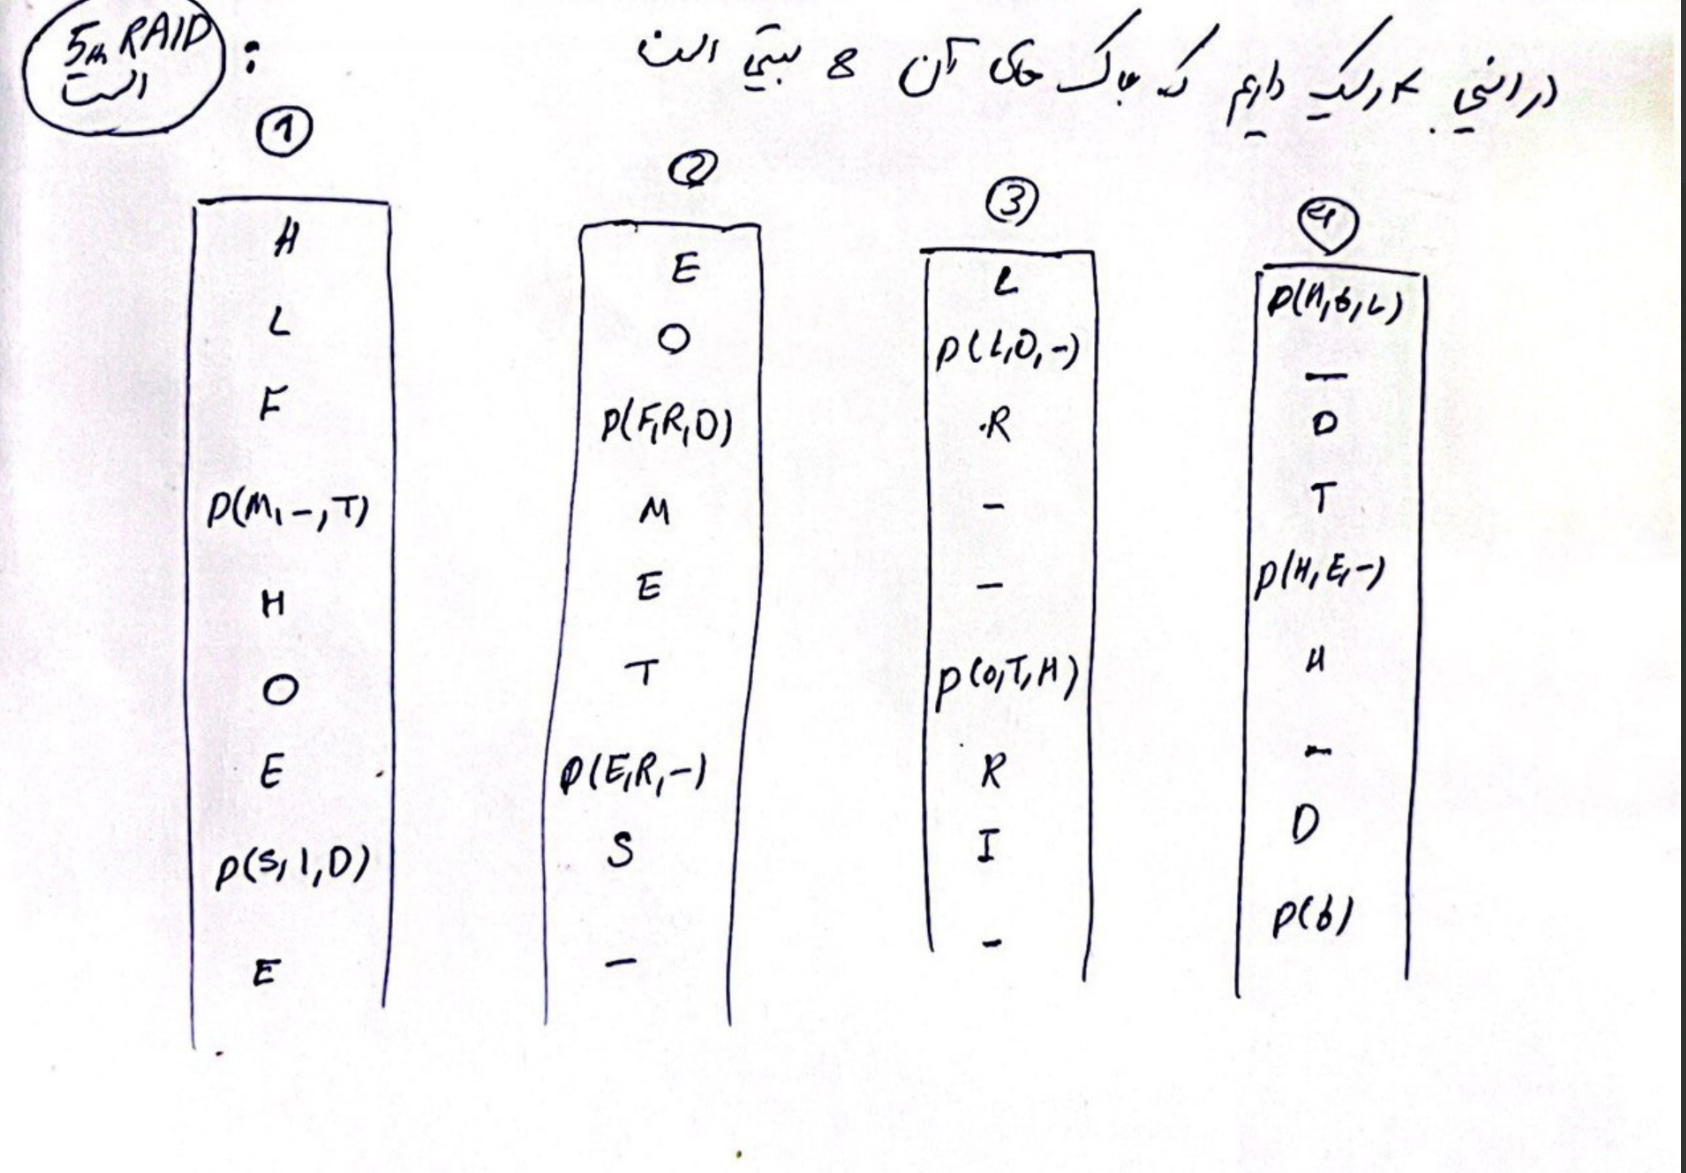 5th RAID :
است
در اینجا ۴ دیسک داریم که بلاک های آن 8 بیتی است
1
H
L
F
P(M,-,T)
H
O
E
P(S,I,D)
E
2
E
O
P(F,R,D)
M
E
T
P(E,R,-)
S
-
3
L
P(L,O,-)
R
-
-
P(O,T,H)
R
I
-
4
P(H,E,L)
-
D
T
P(H,E,-)
H
-
D
P(E)